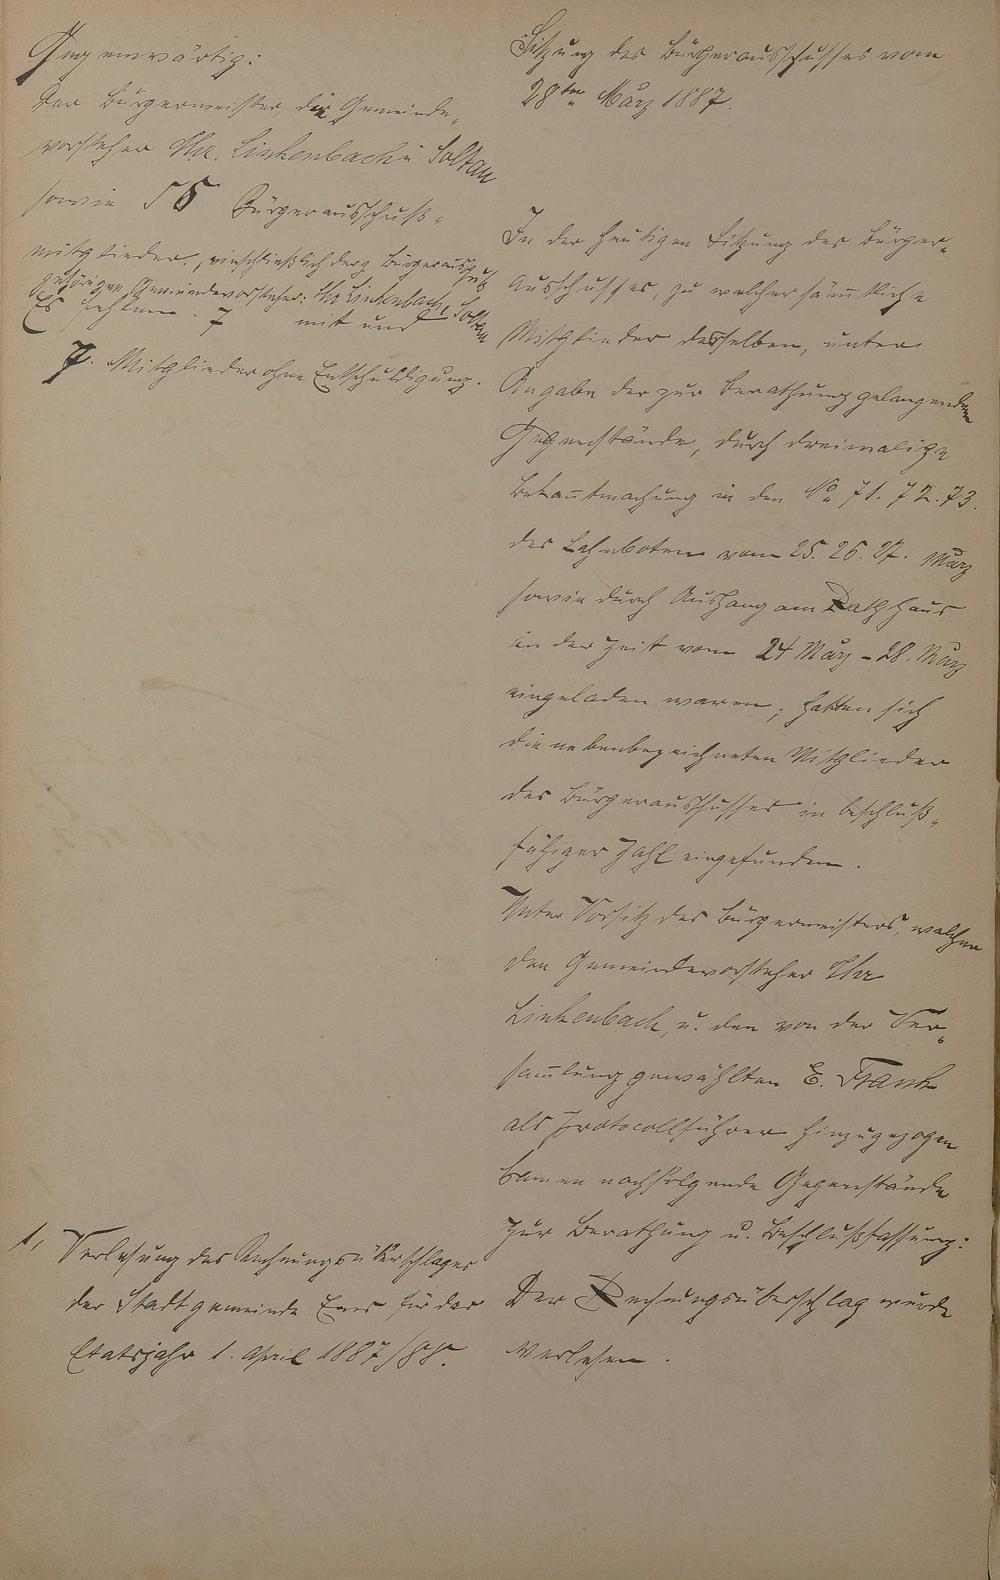 Gegenwärtig:
Der Bürgermeister, die Gemeinde-
vorsteher Thr. Linkenbach u Soltau
sowie 56 Bürgerausschuß-
mitglieder, einschließlich der z. Bürgerausschuß
gehörigen Gemeindevorsteher: Thr Linkenbach, Soltau
Es fehlen 7 mit und
7. Mitglieder ohne Entschuldigung.
1, Verlesung des Rechnungsüberschlages
der Stadtgemeinde Ems für das
Etatsjahr 1. April 1887/88.
Sitzung des Bürgerausschusses vom
28ten März 1887.
In der heutigen Sitzung des Bürger-
Ausschusses, zu welcher sämmtliche
Mitglieder desselben, unter
Angabe der zur Berathung gelangenden
Gegenstände, durch dreimalige
Bekanntmachung in den No 71. 72. 73.
des Lahnboten vom 25. 26. 27. März
sowie durch Aushang am Rathhaus
in der Zeit vom 24 März – 28. März
eingeladen waren, hatten sich
die nebenbezeichneten Mitglieder
des Bürgerausschusses in beschluß-
fähiger Zahl eingefunden.
Unter Vorsitz des Bürgermeisters, welcher
den Gemeindevorsteher Thr
Linkenbach u. den von der Ver-
sammlung gewählten E. Frank
als Protocollführer hinzugezogen
kamen nachfolgende Gegenstände
zur Berathung u. Beschlußfassung:
Der Rechnungsüberschlag wurde
verlesen.